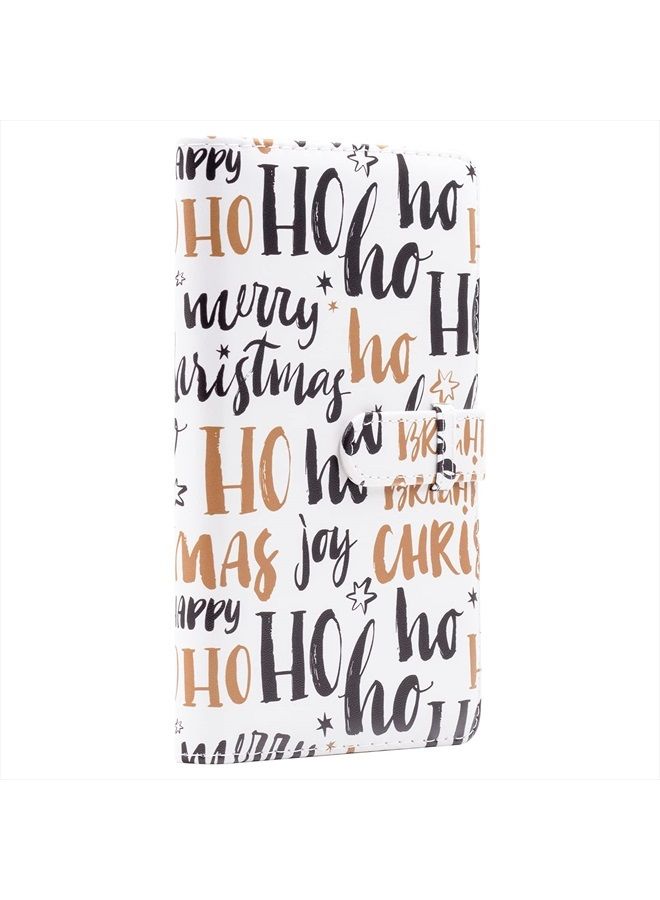 HAPPY
HO HO ho
ho
merry
ho
christmas
HO ho BRIGHT
BRIGHT
MAS joy CHRIS
HAPPY
HO HO ho
ho
merry